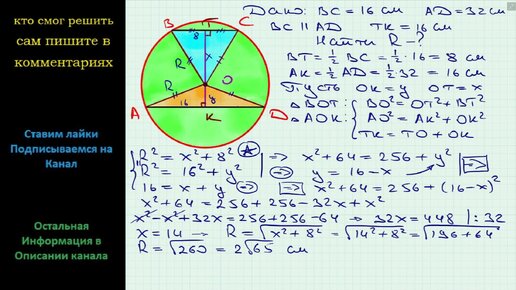 кто смог решить
сам пишите в
комментариях
Ставим лайки
Подписываемся на
Канал
Остальная
Информация в
Описании канала
B T C
8
R x
O
R y
16
A K D
Дано: BC = 16 см AD = 32 см
BC || AD TK = 16 см
Найти R - ?
BT = 1/2 BC = 1/2 · 16 = 8 см
AK = 1/2 AD = 1/2 · 32 = 16 см
Пусть OK = y OT = x
Δ BOT: { BO² = OT² + BT²
Δ AOK: { AO² = AK² + OK²
TK = TO + OK
{ R² = x² + 8² => x² + 64 = 256 + y²
R² = 16² + y² y = 16 - x =>
16 = x + y => => x² + 64 = 256 + (16 - x)²
x² + 64 = 256 + 256 - 32x + x²
x² - x² + 32x = 256 + 256 - 64 → 32x = 448 | : 32
x = 14 → R = √x² + 8² = √14² + 8² = √196 + 64
R = √260 = 2√65 см